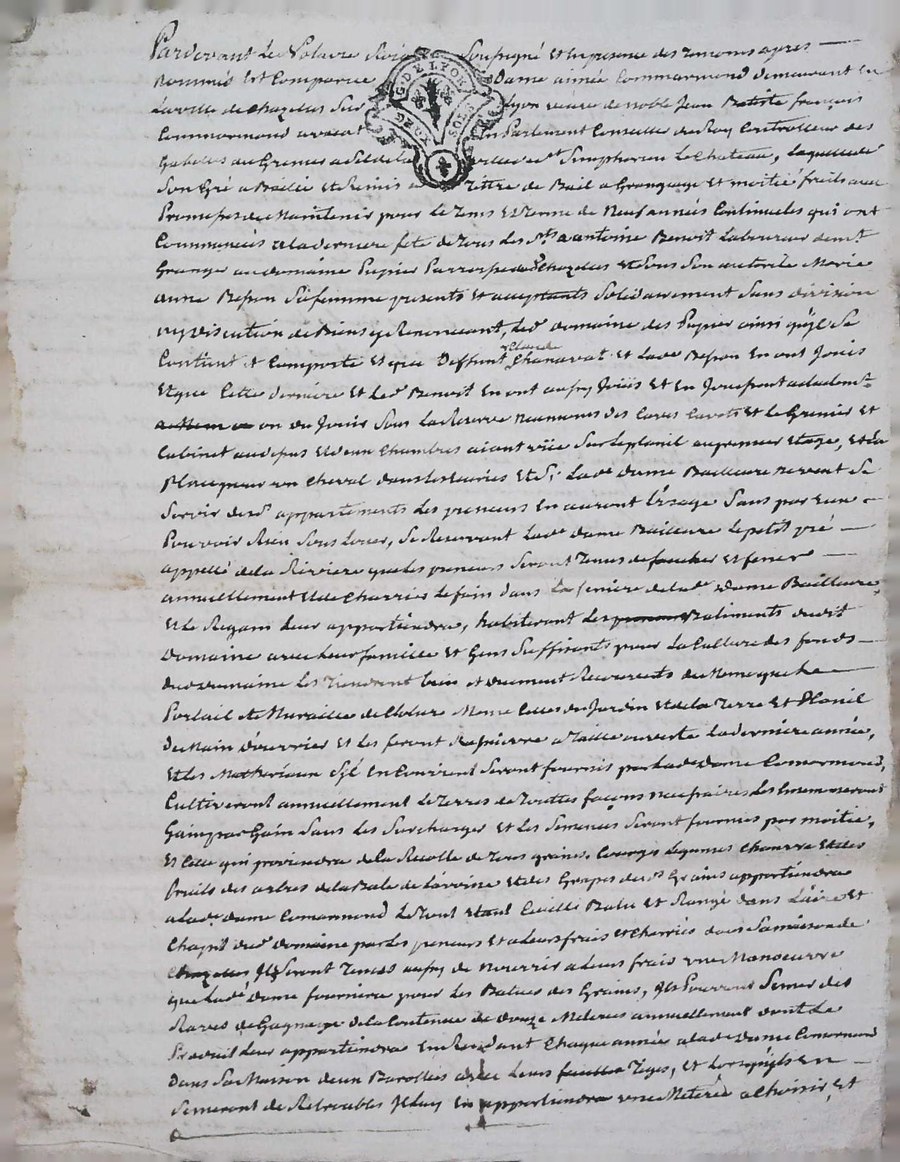 Pardevant Le Notaire Roial Soussigné Et En presence des temoins apres
Nommés Est Comparue Dame aimée Commarmond demeurant En
La ville de Chazelles Sur Lyon veuve de noble Jean Batiste françois
Commarmond avocat En Parlement Conseille du Roy Controlleur des
Gabelles au Grenier a Sel de la ville de St Simphorien Le Chateau, Laquelle de
Son Gré a Baillé Et Remis a Tittre de Bail a Grangeage Et moitié fruits avec
Promesse de Maintenir pour le tems Et terme de Neuf années Continuelles qui ont
Commancés a la derniere fete de tous les Sts a antoine Benoit Laboureur demt
Granger au domaine Pupier Parroisse de Chazelles et Sous Son autorité Marie
anne Besson Sa femme presents Et acceptants Solidairement Sans division
ny discution de Biens y Renonceant, led domaine des Pupier ainsi qu'jl Se
Contient Et Comporte Et que Deffunt Claude Chanavat Et lade Besson En ont Jouis
Et que Cette derniere Et Led Benoit En ont aussy Joüis Et En Jouissent
on du Jouir Sous La Reserve Neanmoins des Caves Et le Grenier Et
Cabinet audessus Et d'eux Chambres aiant vüe Sur Le planil au premier Etage, Et La
place pour un Cheval dans les Ecuries Et Si Lade dame Bailleure ne veut Se
Servir desd appartements Les preneurs En auront L'usage Sans pas Eux
Pouvoir Rien Sous Louer, Se Reservant Lade dame Bailleure Le petit pré
appellé de la Riviere que les preneurs Seront Tenus de faucher et fener
annuellement Et de Charrier Le foin dans La feniere de lade Dame Bailleure,
Et le Regain Leur appartiendra, habiteront Les Batiments dudit
Domaine avec Leur famille Et Gens Suffisants pour La Culture des fonds
dud domaine Les Tiendront bien Et duement Recouverts de Meme que Le
Portail Et Muraille de Cloture Meme Celles du Jardin Et de la Terre Et Planil
De Main d'ouvrier Et Les feront La derniere année,
Et les Matheriaux S'jl En Convient Seront fournis par Lade dame Comarmond,
Cultiveront annuellement Le Terres de Toutes façons necessaires Les Ensemenseront
Gain par Gain Sans Les Surcharger Et Les Semences Seront fournies par moitié,
Et Celle qui proviendra de La Recolte de Tous grains, Courges Legumes Chanvre Et des
fruits des arbres de la Bale de L'avoine Et des Grapes desd Grains appartiendra
a Lade dame Comarmond Le Tout Etant Cuëilli Batu Et Rangé dans L'aire Et
Chapit dud domaine par Les preneurs Et a Leurs frais Et Charriés dans Sa maison de
Chazelles Jls Seront Tenus aussy de nourrir a Leurs frais une Manoeuvre
que Lade dame fournira pour Les Batues des Grains, Jls Pourront Semer des
Raves de Gagnage de la Contenue de douze Meterées annuellement dont Le
Produit Leur appartiendra En Rendant Chaque année a lade dame Comarmond
dans Sa Maison deux Barottées avec Leurs Tiges, Et Lorsqu'jls En
Semeront de Retroubles Jl Luy En appartiendra une Meterée a Choisir, Et